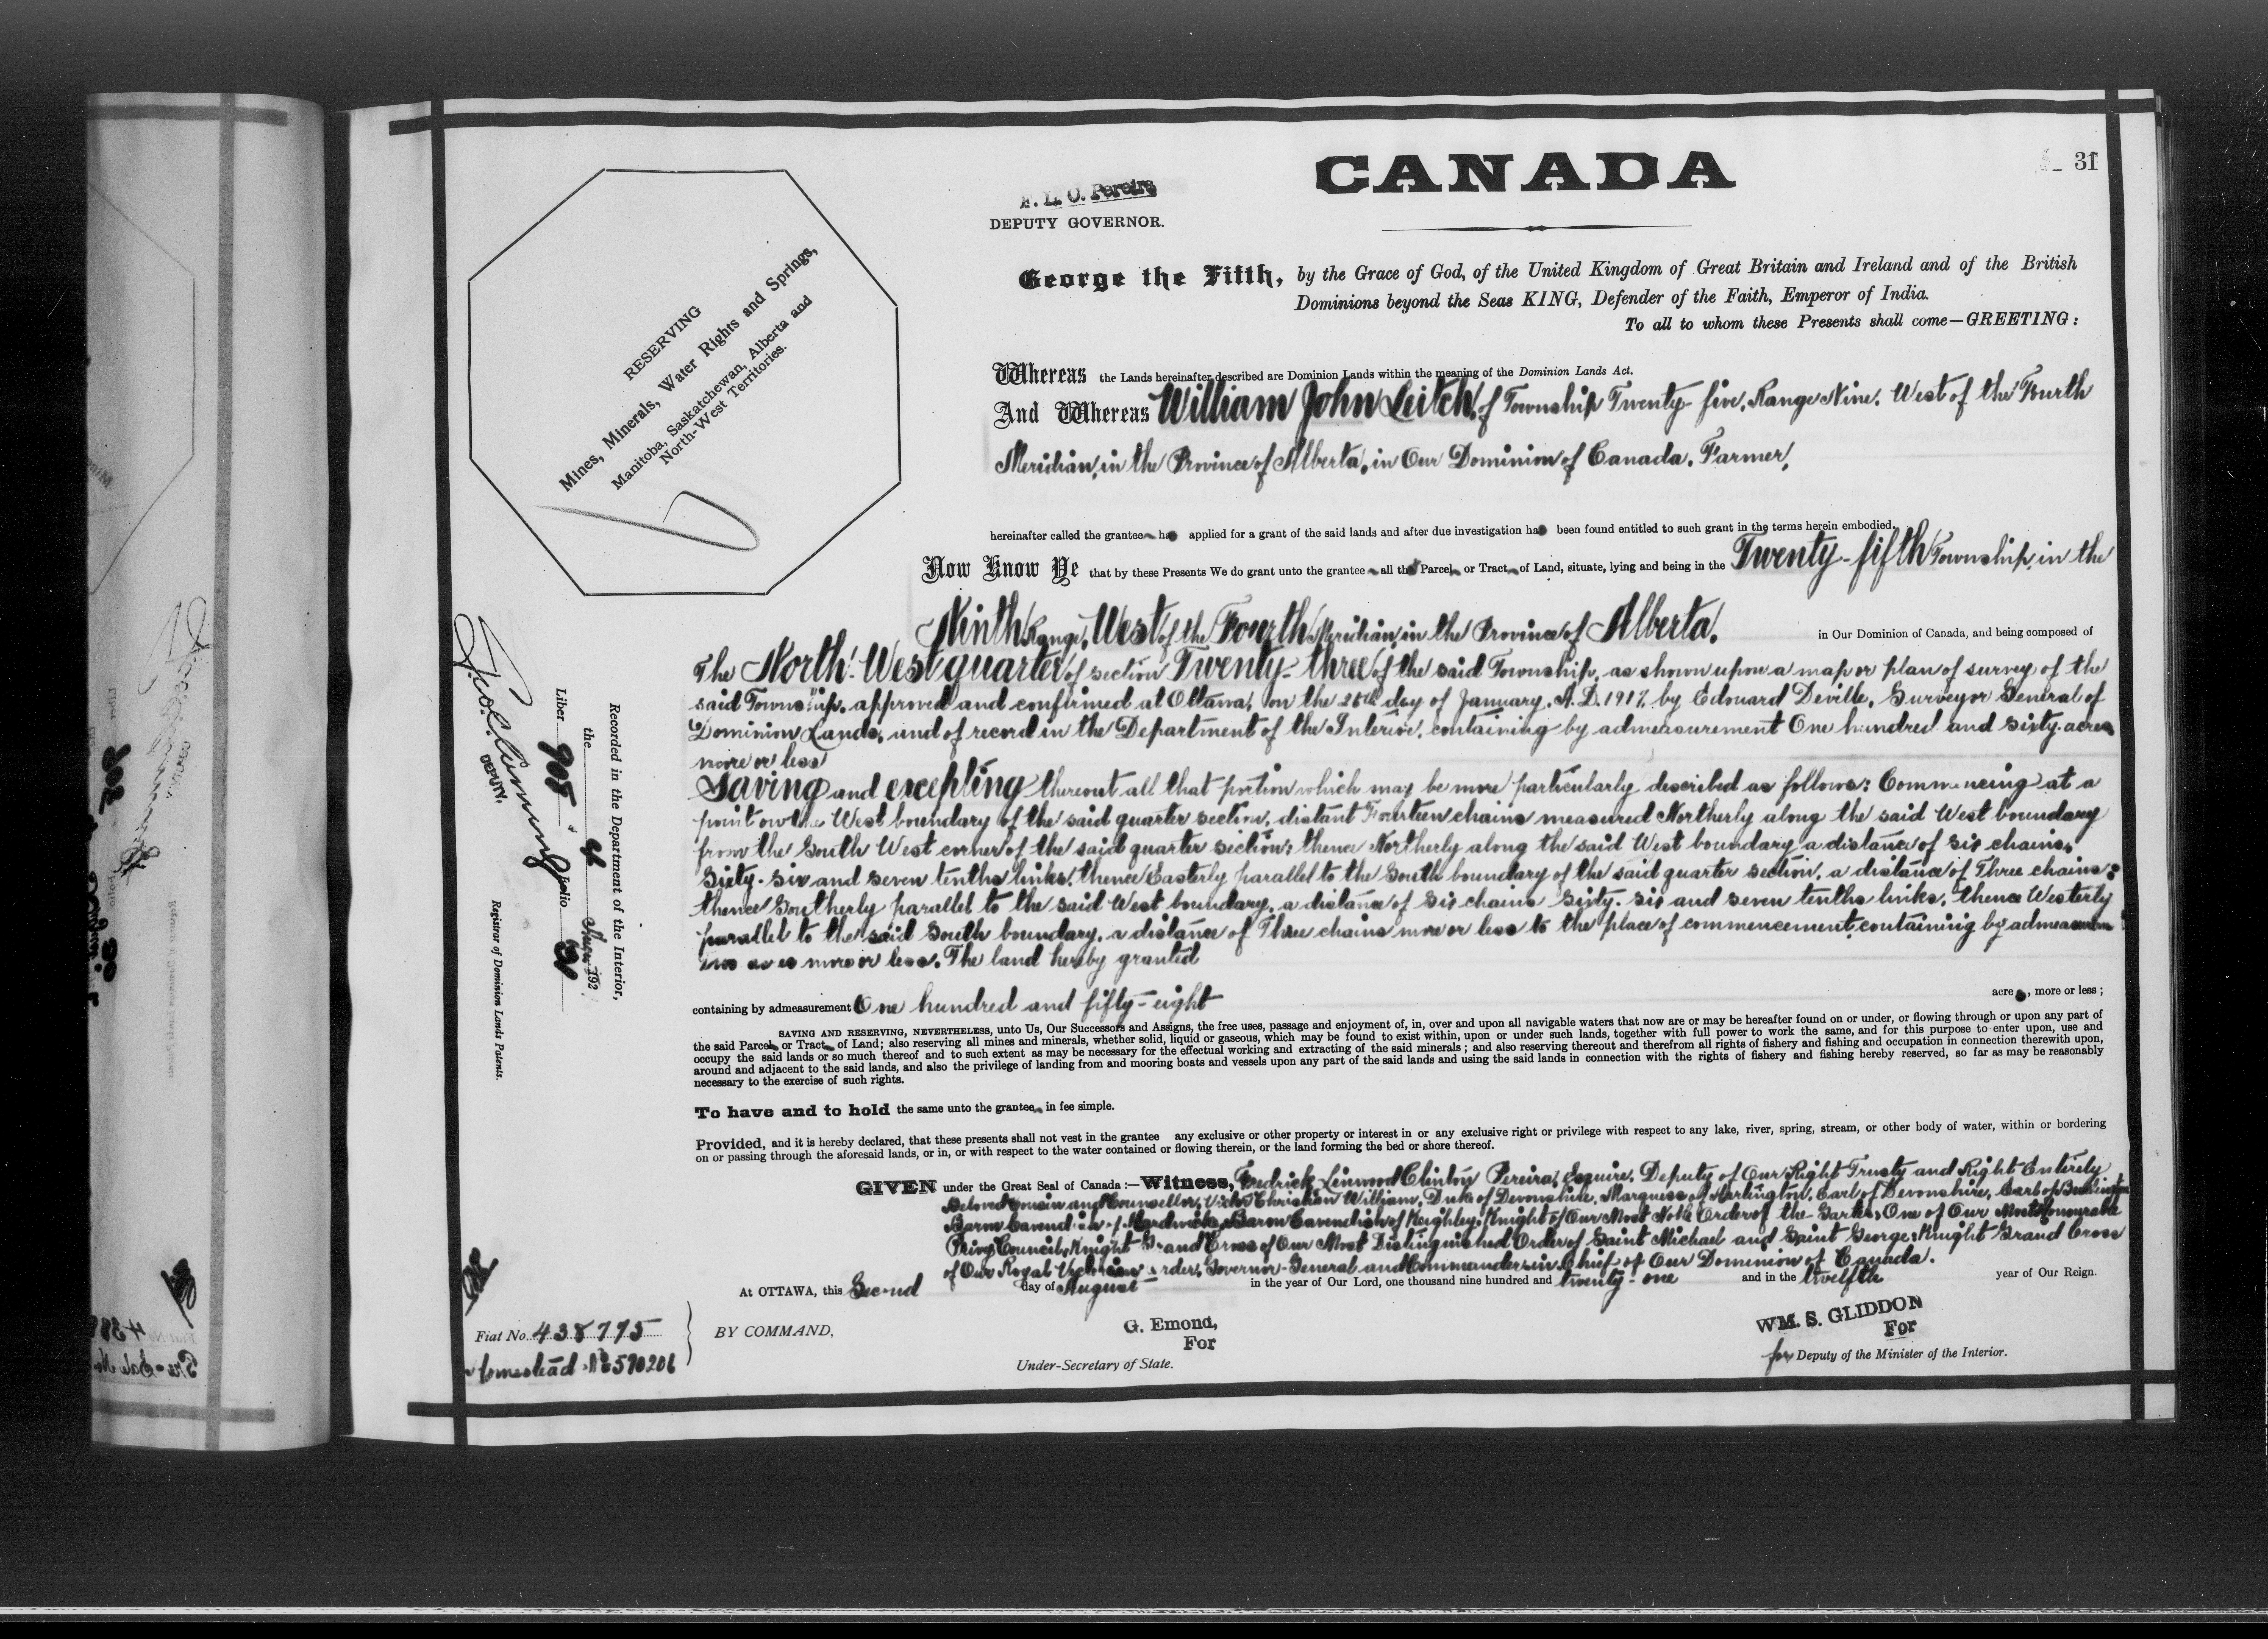 CANADA
31
F. L. C. Pereira
DEPUTY GOVERNOR.
George the Fifth, by the Grace of God, of the United Kingdom of Great Britain and Ireland and of the British
Dominions beyond the Seas KING, Defender of the Faith, Emperor of India.
To all to whom these Presents shall come—GREETING:
RESERVING
Mines, Minerals, Water Rights and Springs,
Manitoba, Saskatchewan, Alberta and
North-West Territories.
Whereas the Lands hereinafter described are Dominion Lands within the meaning of the Dominion Lands Act.
And Whereas William John Leitch, of Township Twenty-five, Range Nine, West of the Fourth
Meridian, in the Province of Alberta, in Our Dominion of Canada, Farmer,
hereinafter called the grantee ha applied for a grant of the said lands and after due investigation ha been found entitled to such grant in the terms herein embodied.
Now Know Ye that by these Presents We do grant unto the grantee all the Parcel or Tract of Land, situate, lying and being in the Twenty-fifth Township, in the
Ninth Range, West of the Fourth Meridian, in the Province of Alberta, in Our Dominion of Canada, and being composed of
The North-West quarter of section Twenty-three of the said Township, as shown upon a map or plan of survey of the
said Township, approved and confirmed at Ottawa, on the 25th day of January, A.D. 1917, by Edouard Deville, Surveyor General of
Dominion Lands, and of record in the Department of the Interior, containing by admeasurement One hundred and sixty acres
more or less
Saving and excepting thereout all that portion which may be more particularly described as follows: Commencing at a
point on the West boundary of the said quarter section, distant Fourteen chains measured Northerly along the said West boundary
from the South West corner of the said quarter section; thence Northerly along the said West boundary a distance of six chains,
Sixty-six and seven tenths links, thence Easterly parallel to the South boundary of the said quarter section, a distance of Three chains;
thence Southerly parallel to the said West boundary, a distance of six chains Sixty-six and seven tenths links, thence Westerly
parallel to the said South boundary, a distance of Three chains more or less to the place of commencement, containing by
more or less. The land hereby granted
containing by admeasurement One hundred and fifty-eight acre , more or less;
SAVING AND RESERVING, NEVERTHELESS, unto Us, Our Successors and Assigns, the free uses, passage and enjoyment of, in, over and upon all navigable waters that now are or may be hereafter found on or under, or flowing through or upon any part of
the said Parcel or Tract of Land; also reserving all mines and minerals, whether solid, liquid or gaseous, which may be found to exist within, upon or under such lands, together with full power to work the same, and for this purpose to enter upon, use and
occupy the said lands or so much thereof and to such extent as may be necessary for the effectual working and extracting of the said minerals; and also reserving thereout and therefrom all rights of fishery and fishing and occupation in connection therewith upon,
around and adjacent to the said lands, and also the privilege of landing from and mooring boats and vessels upon any part of the said lands and using the said lands in connection with the rights of fishery and fishing hereby reserved, so far as may be reasonably
necessary to the exercise of such rights.
To have and to hold the same unto the grantee in fee simple.
Provided, and it is hereby declared, that these presents shall not vest in the grantee any exclusive or other property or interest in or any exclusive right or privilege with respect to any lake, river, spring, stream, or other body of water, within or bordering
on or passing through the aforesaid lands, or in, or with respect to the water contained or flowing therein, or the land forming the bed or shore thereof.
GIVEN under the Great Seal of Canada:—Witness, Fredrick Linwood Clinton Pereira, Esquire, Deputy of Our Right Trusty and Right Entirely
Beloved Cousin and Counsellor, Victor Christian William, Duke of Devonshire, Marquess of Hartington, Earl of Devonshire, Earl of Burlington
Baron Cavendish of Hardwicke, Baron Cavendish of Keighley, Knight of Our Most Noble Order of the Garter, One of Our Most Honourable
Privy Council, Knight Grand Cross of Our Most Distinguished Order of Saint Michael and Saint George, Knight Grand Cross
of Our Royal Victorian Order, Governor-General and Commander-in-Chief of Our Dominion of Canada.
At OTTAWA, this Second day of August in the year of Our Lord, one thousand nine hundred and twenty-one and in the twelfth year of Our Reign.
BY COMMAND,
G. Emond,
For
Under-Secretary of State.
WM. S. GLIDDON
For
for Deputy of the Minister of the Interior.
Fiat No. 438775
Homestead No 590206
Recorded in the Department of the Interior,
the 192
Liber 905 Folio 31
DEPUTY,
Registrar of Dominion Lands Patents.